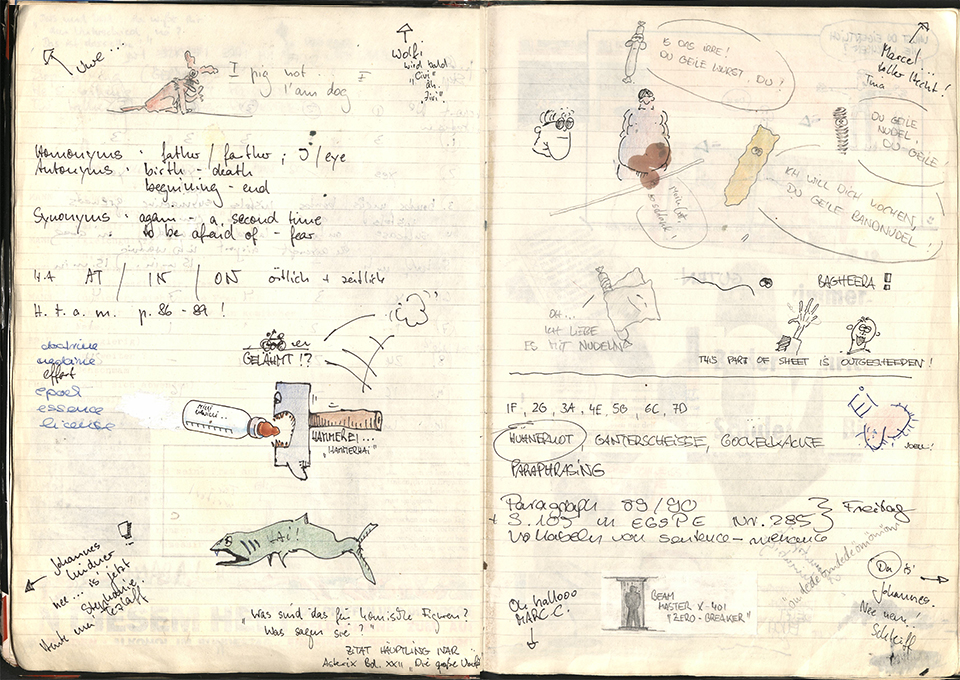 Uwe...
Wolfi
wird bald
"Civi"
äh.
"Zivi".
I pig not.
I'am dog
Homonyms : father / farther ; I / eye
Antonyms : birth - death
beginning - end
Synonyms : again - a second time
to be afraid of - fear
4.4 AT / IN / ON örtlich + zeitlich
H. t. a. m. p. 86 - 89 !
doctrine
medicine
effort
epoch
essence
license
GELÄHMT!?
HAMMEREI...
"HAMMERHAI"
Hai!
Johannes
Lindner
nee... is' jetzt
Stephanie.
"Was sind das für komische Figuren?
Was sagen sie?"
ZITAT HÄUPTLING
Asterix Bd. XXII "Die große
IS DAS IRRE!
DU GEILE WURST, DU?
Marcel...
toller Hecht!
Tina
DU GEILE
NUDEL,
DU GEILE!
ICH WILL DICH KOCHEN,
DU GEILE BANDNUDEL!
OH...
ICH LIEBE
ES MIT NUDELN
BAGHEERA!
THIS PART OF SHEET IS OUTGESHEEDEN!
1F, 2G, 3A, 4E, 5B, 6C, 7D
HÜHNERKOT, GANTERSCHEISSE, GOCKELKACKE
PARAPHRASING
Paragraph 89/90
+ S. 105 in EG&PE Nr. 285 } Freitag
Vokabeln von sentence - menace
Oh hallooo
MARC C.
BEAM
MASTER X-401
"ZERO-BREAKER"
Da is'
Johannes.
Nee nein!